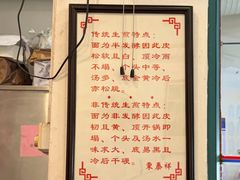 传统生煎特点:
面为半发酵因此皮
松软且白、顶冷而
不塌、个头中等、
汤多、底金黄冷后
亦松脆。
非传统生煎特点:
面为非发酵因此皮
韧且黄、顶开锅即
一塌、个头及汤水
味求大、底易黑且
冷后干硬。
東泰祥